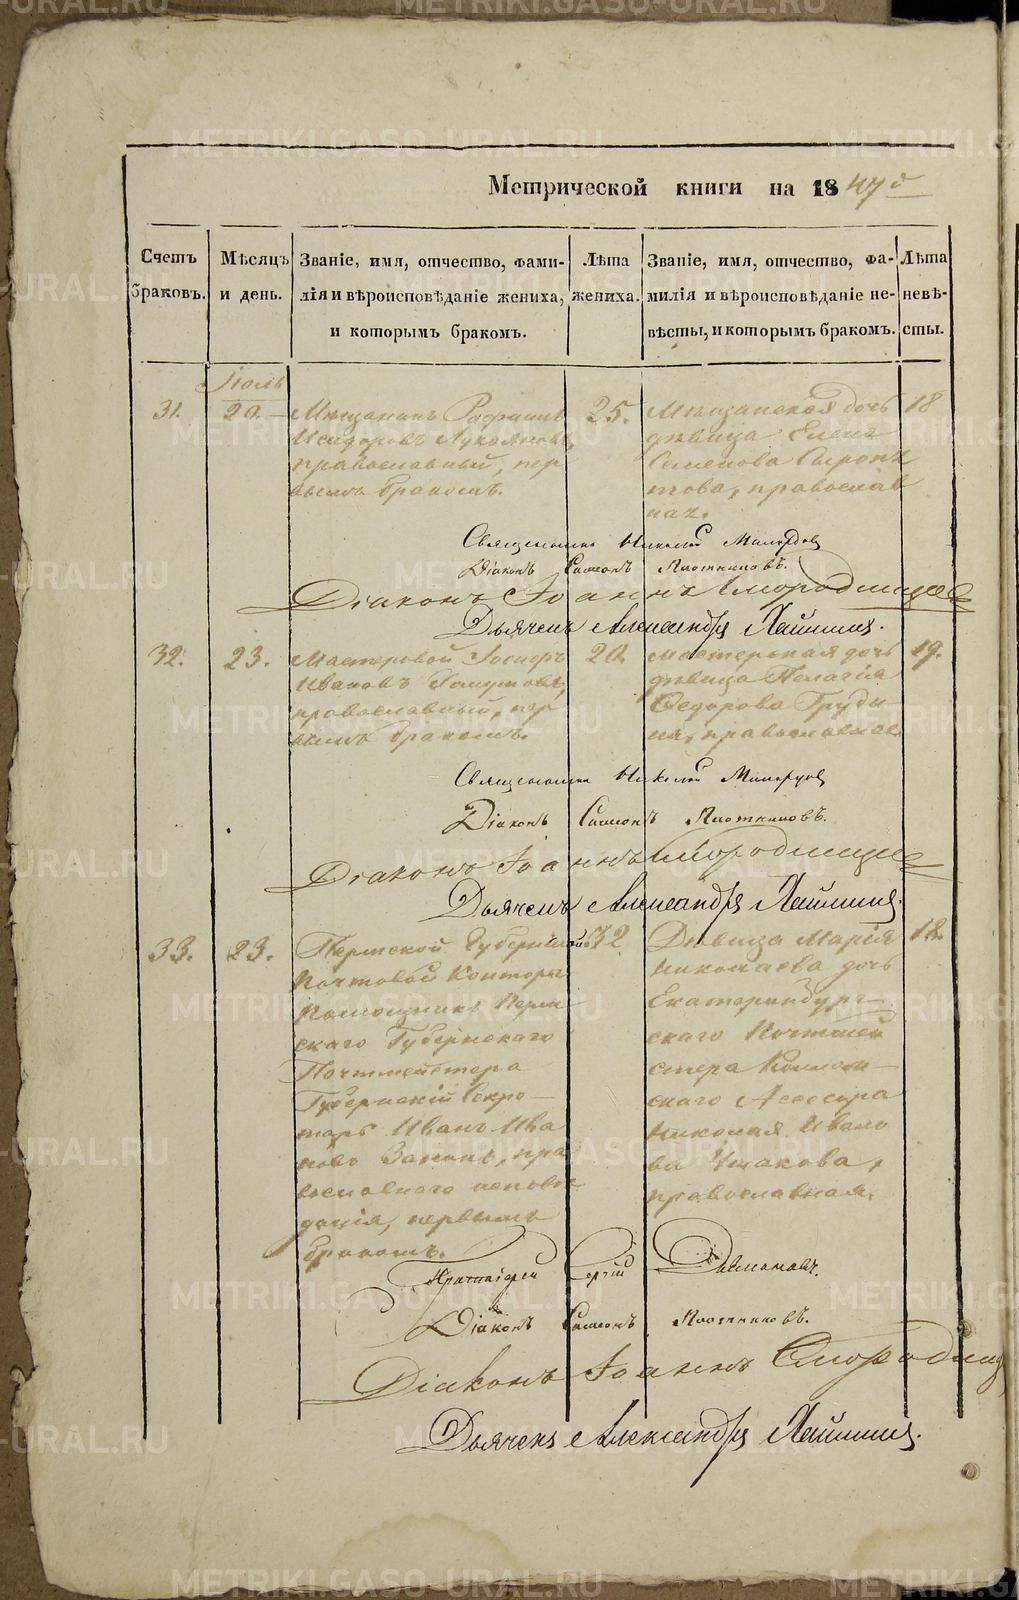 METRIKI.GASO-URAL.RU
Метрической книги на 1847й
Счетъ браковъ.
Мѣсяцъ и день.
Званіе, имя, отчество, фами-
лія и вѣроисповѣданіе жениха,
и которымъ бракомъ.
Лѣта жениха.
Званіе, имя, отчество, фа-
милія и вѣроисповѣданіе не-
вѣсты, и которымъ бракомъ.
Лѣта невѣ-
сты.
Іюль
31.
20.
Мѣщанинъ
Исидоровъ Лукояновъ,
православный, пер
вымъ бракомъ.
25.
Мѣщанская дочь
дѣвица Елена
Семенова Сыропя
това, православ
ная.
18
Священникъ Николай
Діаконъ Симеонъ Плотниковъ.
Діаконъ Іоаннъ Смородинцевъ
Дьячекъ Александръ
32.
23.
Мастеровой Іосифъ
Ивановъ
православный, пер
вымъ бракомъ.
20.
Мастерская дочь
дѣвица Пелагія
Ѳедорова Груди
на, православная.
19.
Священникъ Николай
Діаконъ Симеонъ Плотниковъ.
Діаконъ Іоаннъ Смородинцевъ
Дьячекъ Александръ
33.
23.
Пермской Губернской
Почтовой Конторы
Помощникъ Перм
скаго Губернскаго
Почтмейстера
Губернскій Секре-
тарь Иванъ Ива
новъ православнаго исповѣ
данія, первымъ
бракомъ.
32
Дѣвица Марія
Николаева дочь
Екатеринбург-
скаго Почтмей
стера Коллеж-
скаго Ассесора
Николая Ивано
ва Ушакова,
православная.
18.
Протоіерей
Діаконъ Симеонъ Плотниковъ.
Діаконъ Іоаннъ Смородинц
Дьячекъ Александръ